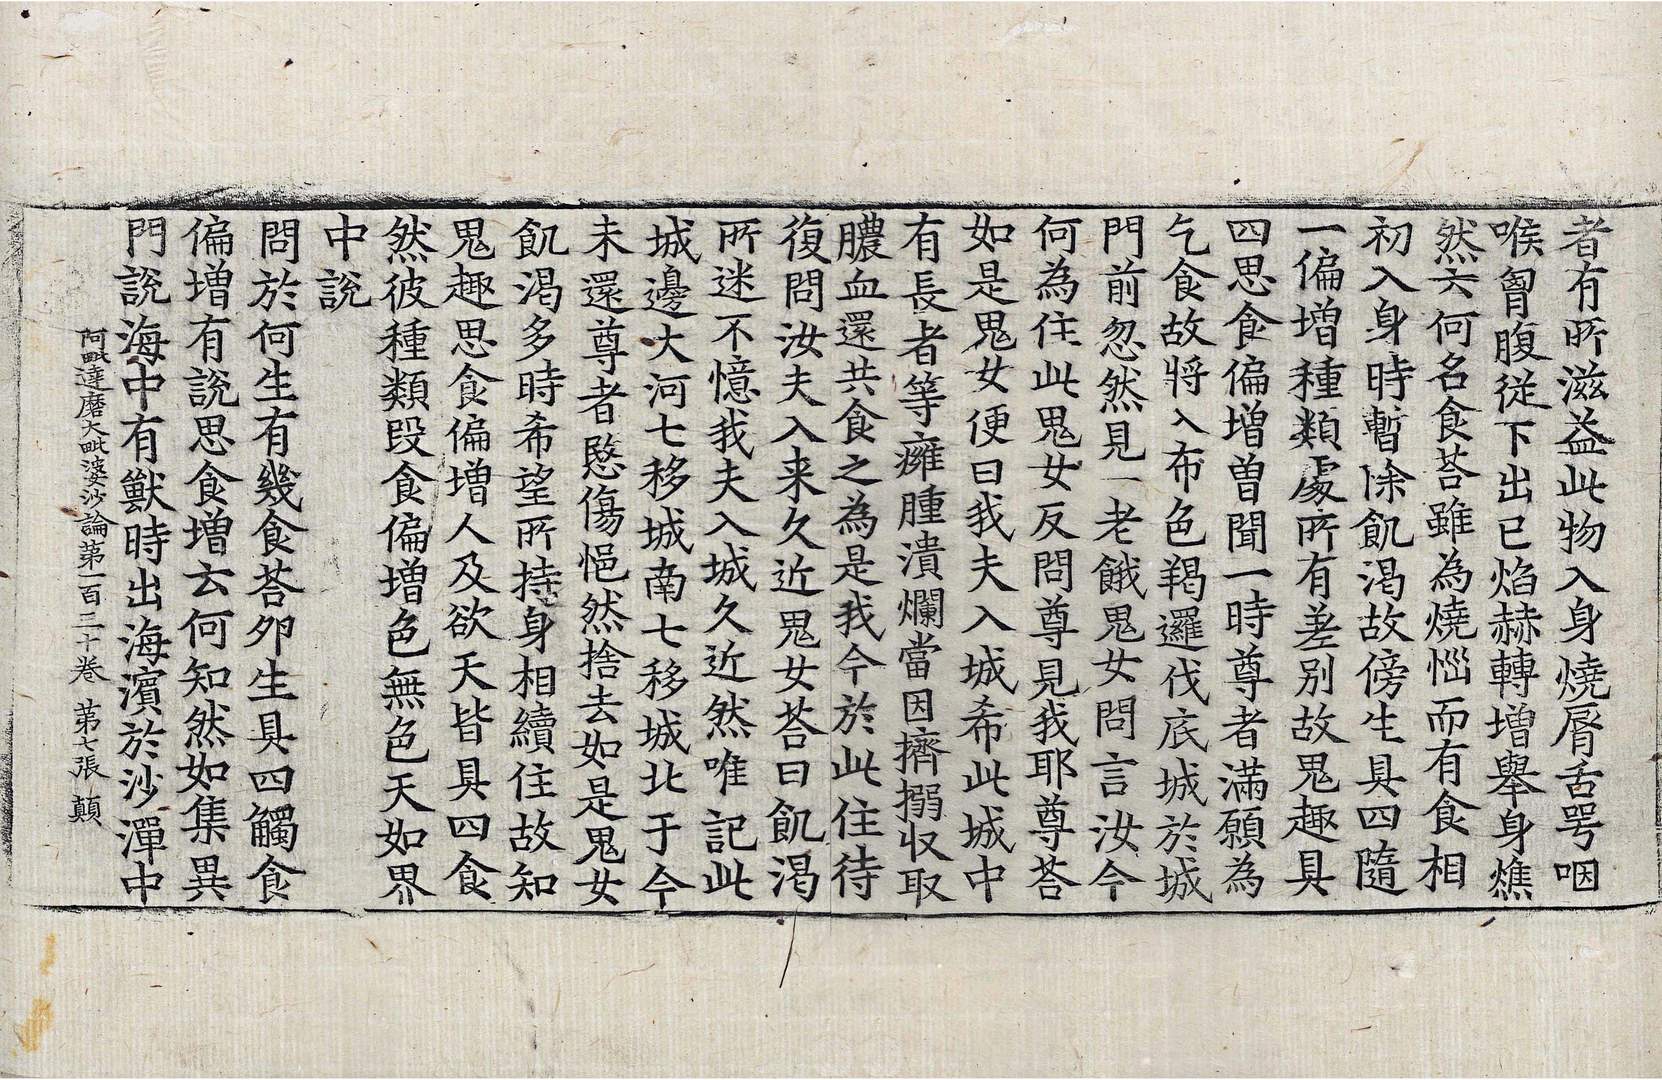 者有所滋益此物入身燒脣舌咢咽
喉胷腹從下出已焰赫轉增舉身燋
然云何名食荅雖為燒惱而有食相
初入身時暫除飢渴故傍生具四隨
一偏增種類處所有差別故鬼趣具
四思食偏增曾聞一時尊者滿願為
乞食故將入布色羯邏伐底城於城
門前忽然見一老餓鬼女問言汝今
何為住此鬼女反問尊見我耶尊荅
如是鬼女便曰我夫入城希此城中
有長者等癰腫潰爛當因擠搦収取
膿血還共食之為是我今於此住待
復問汝夫入来久近鬼女荅曰飢渴
所迷不憶我夫入城久近然唯記此
城邊大河七移城南七移城北于今
未還尊者愍傷悒然捨去如是鬼女
飢渴多時希望所持身相續住故知
鬼趣思食偏增人及欲天皆具四食
然彼種類段食偏增色無色天如界
中說
問於何生有幾食荅夘生具四觸食
偏增有說思食增云何知然如集異
門說海中有獸時出海濱於沙潬中
阿毗達磨大毗婆沙論第一百三十卷 第七張 顛